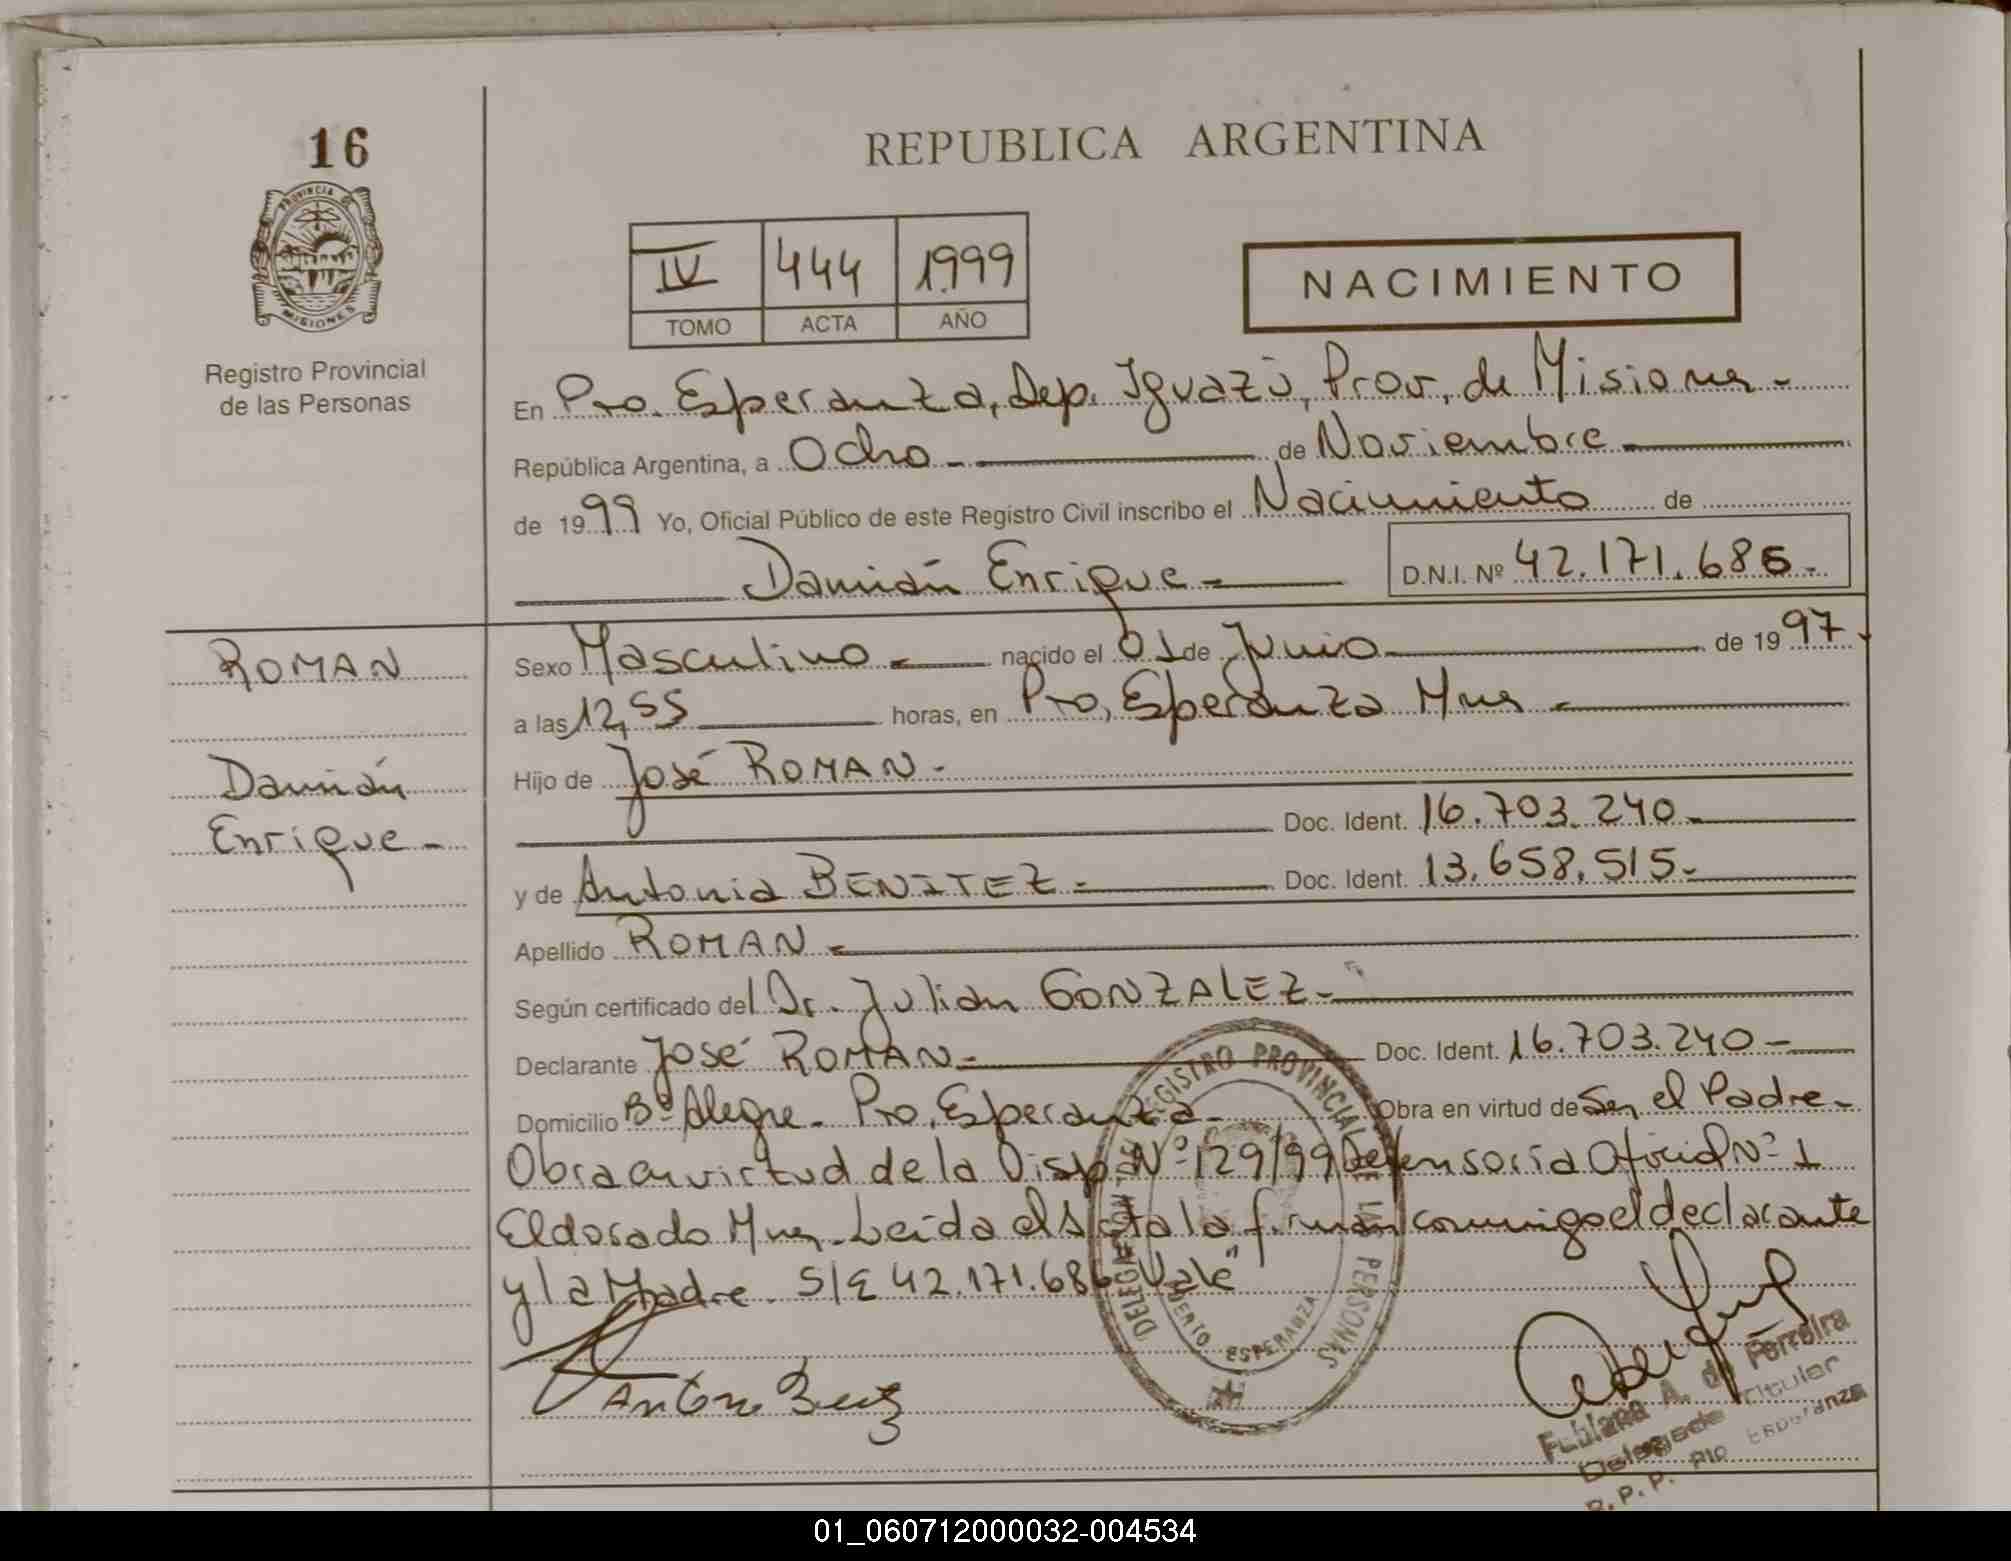 16
REPUBLICA ARGENTINA
PROVINCIA DE
MISIONES
Registro Provincial
de las Personas
IV 444 1.999
TOMO ACTA AÑO
NACIMIENTO
En Pto. Esperanza, Dep. Iguazú, Prov. de Misiones -
República Argentina, a Ocho - de Noviembre
de 1999 Yo, Oficial Público de este Registro Civil inscribo el Nacimiento de
Damián Enrique - D.N.I. Nº 42.171.686 -
ROMAN
Damián
Enrique -
Sexo Masculino - nacido el 01 de Junio de 1997.
a las 12,55 horas, en Pto, Esperanza Mnes -
Hijo de José ROMAN -
Doc. Ident. 16.703.240 -
y de Antonia BENITEZ - Doc. Ident. 13.658.515 -
Apellido ROMAN -
Según certificado del Dr. Julian GONZALEZ -
Declarante José ROMAN - Doc. Ident. 16.703.240 -
Domicilio Bº Alegre - Pto, Esperanza - Obra en virtud de Ser el Padre -
Obra en virtud de la Disp. Nº 129/99 Defensoría Oficial Nº 1
Eldorado Mnes - Leída el Acta la firman conmigo el declarante
y la Madre. S/E 42.171.686 "Vale"
REGISTRO PROVINCIAL DE LAS PERSONAS
PUERTO ESPERANZA
Fabiana A. de Ferreira
Delegada Titular
R.P.P. Pto Esperanza
01_060712000032-004534